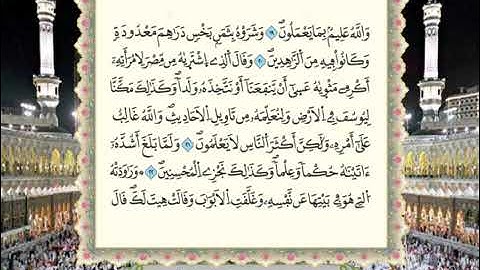 وَاللَّهُ عَلِيمٌ بِمَا يَعْمَلُونَۖ ١٩ وَشَرَوْهُ بِثَمَنٍ بَخْسٍ دَرَاهِمَ مَعْدُودَةٍ
وَكَانُوا فِيهِ مِنَ الزَّاهِدِينَۖ ٢٠ وَقَالَ الَّذِي اِشْتَرَيٰهُ مِن مِّصْرَ لِامْرَأَتِهِ
أَكْرِمِي مَثْوَيٰهُ عَسَيٰ أَنْ يَّنفَعَنَا أَوْ نَتَّخِذَهُ وَلَداًۖ وَكَذَٰلِكَ مَكَّنَّا
لِيُوسُفَ فِي الْأَرْضِ وَلِنُعَلِّمَهُ مِن تَاوِيلِ الْأَحَادِيثِۖ وَاللَّهُ غَالِبٌ
عَلَيٰ أَمْرِهِ وَلَٰكِنَّ أَكْثَرَ النَّاسِ لَا يَعْلَمُونَۖ ٢١ وَلَمَّا بَلَغَ أَشُدَّهُ
ءَاتَيْنَٰهُ حُكْماً وَعِلْماًۖ وَكَذَٰلِكَ نَجْزِي الْمُحْسِنِينَۖ ٢٢ وَرَٰوَدَتْهُ
الَّتِي هُوَ فِي بَيْتِهَا عَن نَّفْسِهِ وَغَلَّقَتِ الْأَبْوَٰبَ وَقَالَتْ هِيتَ لَكَۖ قَالَ